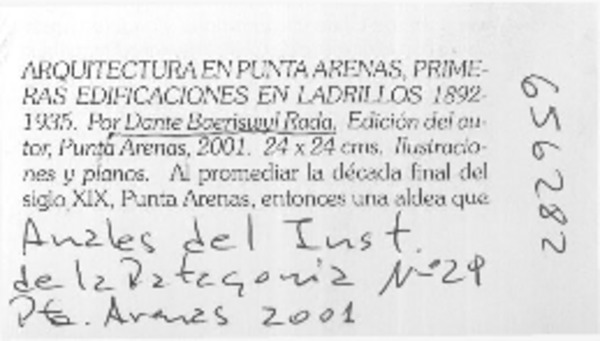 ARQUITECTURA EN PUNTA ARENAS, PRIME-
RAS EDIFICACIONES EN LADRILLOS 1892-
1935. Por Dante Baeriswyl Rada. Edición del au-
tor, Punta Arenas, 2001. 24 x 24 cms. Ilustracio-
nes y planos. Al promediar la década final del
siglo XIX, Punta Arenas, entonces una aldea que
Anales del Inst.
de la Patagonia Nº 29
Pta. Arenas 2001
656282